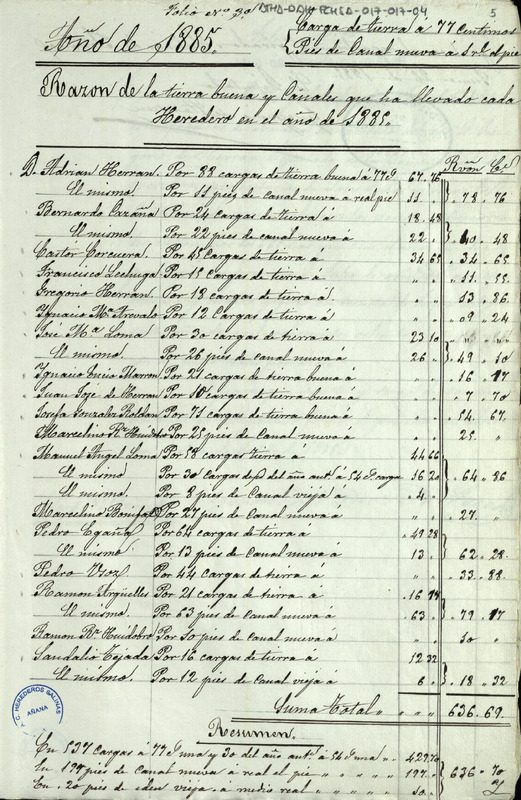 Folio Nº 2º ATHA-DAH-FCHSA-017-017-04
5
Año de 1885.
Carga de tierra á 77 centimos
Pies de Canal nueva á 1 rl. el pie
Razon de la tierra buena y Cánales que ha llevado cada
Heredero en el año de 1885.
Rvón Cs
D. Adrian Herran. Por 88 cargas de tierra buena á 77 cs 67. 76
El mismo Por 11 pies de canal nueva a real pie 11 . 78. 76
Bernardo Por 24 cargas de tierra á 18. 48
El mismo. Por 22 pies de canal nueva a 22 . 40. 48
Castor Corcuera. Por 45 cargas de tierra á 34 65 . 34. 65
Francisco Lechuga Por 15 cargas de tierra á " " . 11. 55
Gregorio Herran. Por 18 cargas de tierra á " " 13. 86
Ygnacio Mª Arevalo Por 12 Cargas de tierra á " " 09. 24
José Mª Loma Por 30 cargas de tierra á 23 10 " "
El mismo. Por 26 pies de canal nueva á 26 . 49. 10
Ygnacio Inicio Marron Por 21 cargas de tierra buena á " " 16. 17
Juan José de Herran Por 10 cargas de tierra buena á " " 7. 70
Josefa Gonzalez Roldan Por 71 cargas de tierra buena á " " 54. 67.
Marcelino Rz Huidobro Por 25 pies de Canal nueva á " " 25. "
Manuel Angel Loma Por 58 cargas tierra á 44 66
El mismo Por 30 cargas del año antr. á 54 cs carga 16 20 . 64. 86
El mismo. Por 8 pies de Canal vieja á 4 .
Marcelino Por 27 pies de Canal nueva á " " 27. "
Pedro Egaña Por 64 cargas de tierra á 49 28
El mismo Por 13 pies de canal nueva á 13 . 62. 28.
Pedro Por 44 Cargas de tierra á " " 33. 88.
Ramon Argüelles Por 21 cargas de tierra á 16 17
El mismo. Por 63 pies de canal nueva á 63. . 79. 17
Ramon Rz Huidobro Por 10 pies de Canal nueva á " " 10 "
Sandalio Tejada Por 16 cargas de tierra á 12 32
El mismo. Por 12 pies de Canal vieja á 6 . 18. 32
Suma Total " " " " 636. 69.
Resumen.
En 537 cargas á 77 cs una y 30 del año antr. á 54 cs una " " 429. 70
En 197 pies de canal nueva á real el pie " " " " " 197. " 636 = 70
En 20 pies de iden vieja a medio real " " " " " 10. "
C. HEREDEROS SALINAS
AÑANA